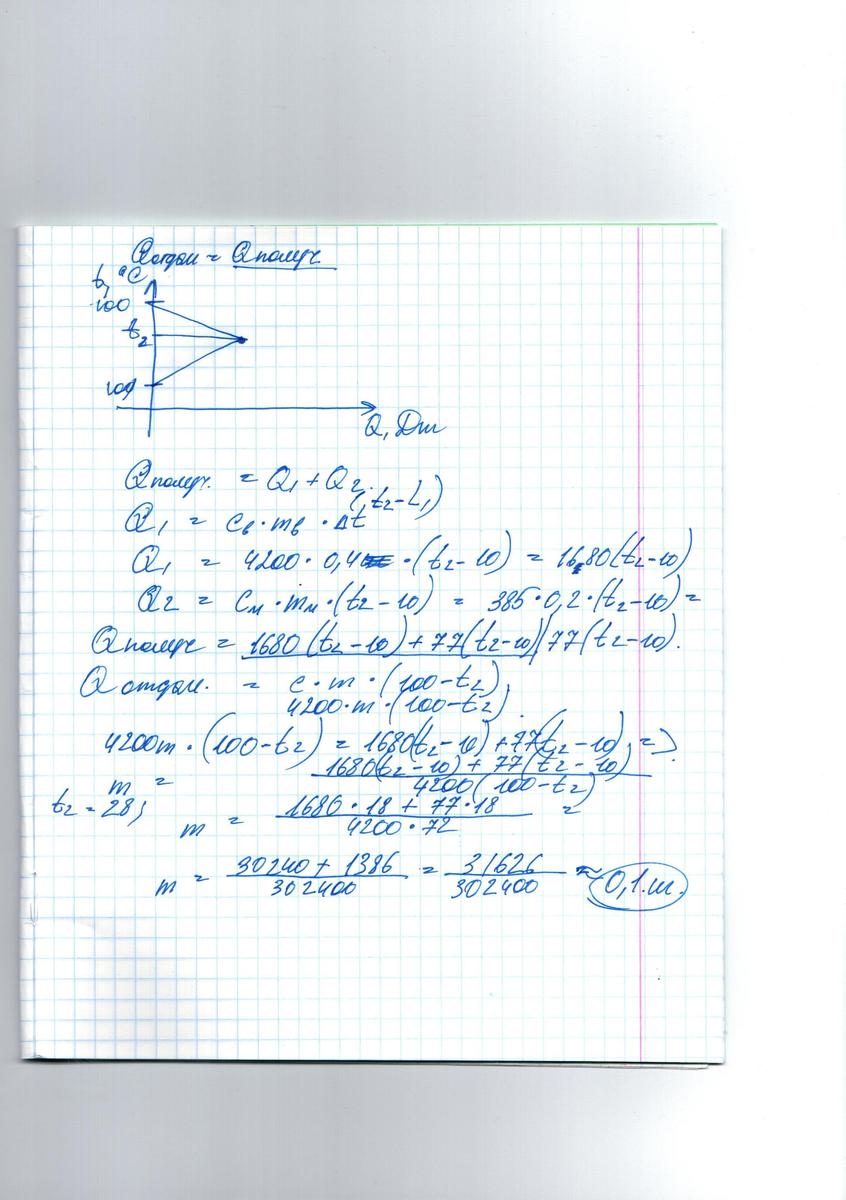 Qотдан = Qполуч
t, °C
100
t₂
10
Q, Дж
Qполуч. = Q₁ + Q₂.
(t₂ - t₁)
Q₁ = Cв · mв · Δt
Q₁ = 4200 · 0,4 · (t₂ - 10) = 1680 (t₂ - 10)
Q₂ = Cм · mм · (t₂ - 10) = 385 · 0,2 · (t₂ - 10) =
Qполуч = 1680 (t₂ - 10) + 77(t₂ - 10) | 77 (t₂ - 10).
Qотдан. = c · m · (100 - t₂),
4200 · m · (100 - t₂).
4200m · (100 - t₂) = 1680(t₂ - 10) + 77(t₂ - 10) =>
m = 1680(t₂ - 10) + 77(t₂ - 10)
4200 (100 - t₂)
t₂ = 28;
m = 1680 · 18 + 77 · 18 =
4200 · 72
m = 30240 + 1386 = 31626 ≈ 0,1
302400 302400